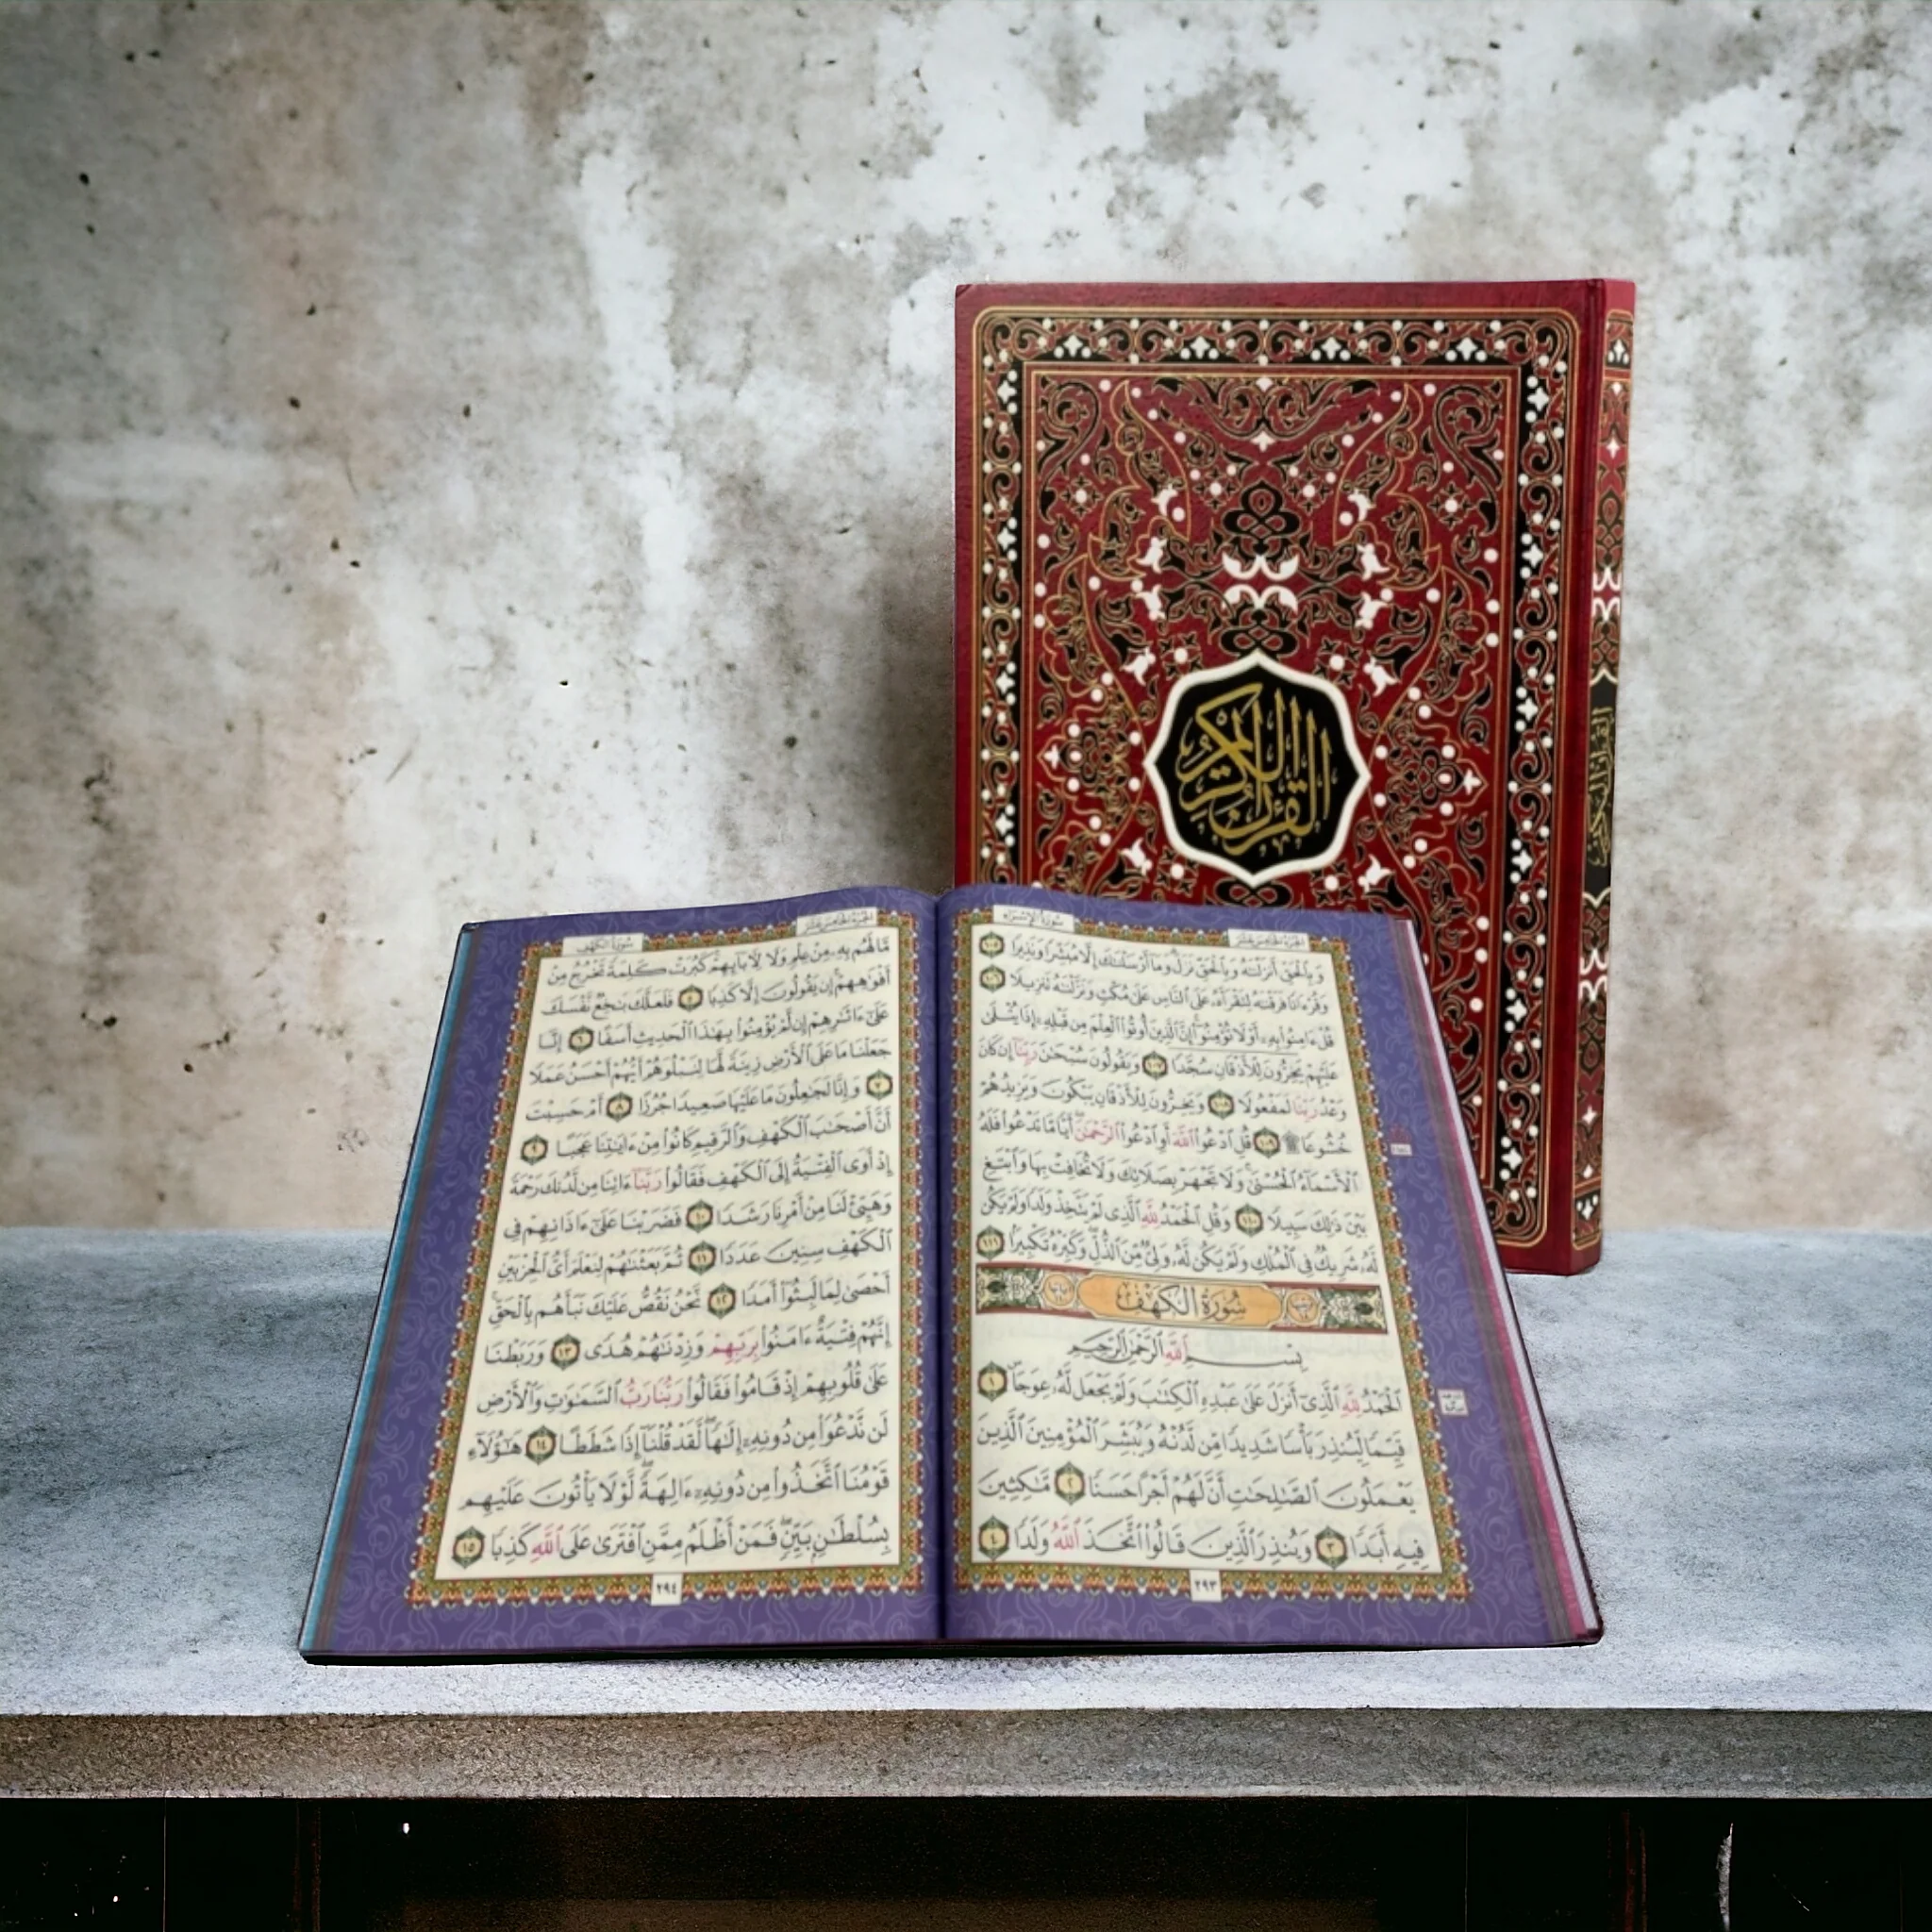 القرآن الكريم
القرآن الكريم
سُورَةُ الإِسْرَاءِ
الجزء الخامس عشر
وَبِٱلْحَقِّ أَنزَلْنَٰهُ وَبِٱلْحَقِّ نَزَلَ ۗ وَمَآ أَرْسَلْنَٰكَ إِلَّا مُبَشِّرًا وَنَذِيرًا ١٠٥
وَقُرْءَانًا فَرَقْنَٰهُ لِتَقْرَأَهُۥ عَلَى ٱلنَّاسِ عَلَىٰ مُكْثٍ وَنَزَّلْنَٰهُ تَنزِيلًا ١٠٦
قُلْ ءَامِنُوا۟ بِهِۦٓ أَوْ لَا تُؤْمِنُوٓا۟ ۚ إِنَّ ٱلَّذِينَ أُوتُوا۟ ٱلْعِلْمَ مِن قَبْلِهِۦٓ إِذَا يُتْلَىٰ
عَلَيْهِمْ يَخِرُّونَ لِلْأَذْقَانِ سُجَّدًا ١٠٧ وَيَقُولُونَ سُبْحَٰنَ رَبِّنَآ إِن كَانَ
وَعْدُ رَبِّنَا لَمَفْعُولًا ١٠٨ وَيَخِرُّونَ لِلْأَذْقَانِ يَبْكُونَ وَيَزِيدُهُمْ
خُشُوعًا ۩ ١٠٩ قُلِ ٱدْعُوا۟ ٱللَّهَ أَوِ ٱدْعُوا۟ ٱلرَّحْمَٰنَ ۖ أَيًّا مَّا تَدْعُوا۟ فَلَهُ
ٱلْأَسْمَآءُ ٱلْحُسْنَىٰ ۚ وَلَا تَجْهَرْ بِصَلَاتِكَ وَلَا تُخَافِتْ بِهَا وَٱبْتَغِ
بَيْنَ ذَٰلِكَ سَبِيلًا ١١٠ وَقُلِ ٱلْحَمْدُ لِلَّهِ ٱلَّذِى لَمْ يَتَّخِذْ وَلَدًا وَلَمْ يَكُن
لَّهُۥ شَرِيكٌ فِى ٱلْمُلْكِ وَلَمْ يَكُن لَّهُۥ وَلِىٌّ مِّنَ ٱلذُّلِّ ۖ وَكَبِّرْهُ تَكْبِيرًۢا ١١١
سُورَةُ الكَهْفِ
بِسْمِ ٱللَّهِ ٱلرَّحْمَٰنِ ٱلرَّحِيمِ
ٱلْحَمْدُ لِلَّهِ ٱلَّذِىٓ أَنزَلَ عَلَىٰ عَبْدِهِ ٱلْكِتَٰبَ وَلَمْ يَجْعَل لَّهُۥ عِوَجَا ۜ ١
قَيِّمًا لِّيُنذِرَ بَأْسًا شَدِيدًا مِّن لَّدُنْهُ وَيُبَشِّرَ ٱلْمُؤْمِنِينَ ٱلَّذِينَ
يَعْمَلُونَ ٱلصَّٰلِحَٰتِ أَنَّ لَهُمْ أَجْرًا حَسَنًا ٢ مَّٰكِثِينَ
فِيهِ أَبَدًا ٣ وَيُنذِرَ ٱلَّذِينَ قَالُوا۟ ٱتَّخَذَ ٱللَّهُ وَلَدًا ٤
٢٩٣
الجزء الخامس عشر
سُورَةُ الكَهْفِ
مَّا لَهُم بِهِۦ مِنْ عِلْمٍ وَلَا لِـَٔابَآئِهِمْ ۚ كَبُرَتْ كَلِمَةً تَخْرُجُ مِنْ
أَفْوَٰهِهِمْ ۚ إِن يَقُولُونَ إِلَّا كَذِبًا ٥ فَلَعَلَّكَ بَٰخِعٌ نَّفْسَكَ
عَلَىٰٓ ءَاثَٰرِهِمْ إِن لَّمْ يُؤْمِنُوا۟ بِهَٰذَا ٱلْحَدِيثِ أَسَفًا ٦ إِنَّا
جَعَلْنَا مَا عَلَى ٱلْأَرْضِ زِينَةً لَّهَا لِنَبْلُوَهُمْ أَيُّهُمْ أَحْسَنُ عَمَلًا
٧ وَإِنَّا لَجَٰعِلُونَ مَا عَلَيْهَا صَعِيدًا جُرُزًا ٨ أَمْ حَسِبْتَ
أَنَّ أَصْحَٰبَ ٱلْكَهْفِ وَٱلرَّقِيمِ كَانُوا۟ مِنْ ءَايَٰتِنَا عَجَبًا ٩
إِذْ أَوَى ٱلْفِتْيَةُ إِلَى ٱلْكَهْفِ فَقَالُوا۟ رَبَّنَآ ءَاتِنَا مِن لَّدُنكَ رَحْمَةً
وَهَيِّئْ لَنَا مِنْ أَمْرِنَا رَشَدًا ١٠ فَضَرَبْنَا عَلَىٰٓ ءَاذَانِهِمْ فِى
ٱلْكَهْفِ سِنِينَ عَدَدًا ١١ ثُمَّ بَعَثْنَٰهُمْ لِنَعْلَمَ أَىُّ ٱلْحِزْبَيْنِ
أَحْصَىٰ لِمَا لَبِثُوٓا۟ أَمَدًا ١٢ نَّحْنُ نَقُصُّ عَلَيْكَ نَبَأَهُم بِٱلْحَقِّ ۚ
إِنَّهُمْ فِتْيَةٌ ءَامَنُوا۟ بِرَبِّهِمْ وَزِدْنَٰهُمْ هُدًى ١٣ وَرَبَطْنَا
عَلَىٰ قُلُوبِهِمْ إِذْ قَامُوا۟ فَقَالُوا۟ رَبُّنَا رَبُّ ٱلسَّمَٰوَٰتِ وَٱلْأَرْضِ
لَن نَّدْعُوَا۟ مِن دُونِهِۦٓ إِلَٰهًا ۖ لَّقَدْ قُلْنَآ إِذًا شَطَطًا ١٤ هَٰٓؤُلَآءِ
قَوْمُنَا ٱتَّخَذُوا۟ مِن دُونِهِۦٓ ءَالِهَةً ۖ لَّوْلَا يَأْتُونَ عَلَيْهِم
بِسُلْطَٰنٍۭ بَيِّنٍ ۖ فَمَنْ أَظْلَمُ مِمَّنِ ٱفْتَرَىٰ عَلَى ٱللَّهِ كَذِبًا ١٥
٢٩٤